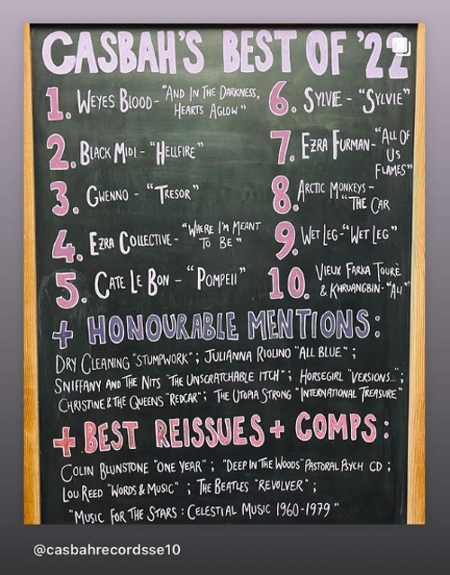 CASBAH'S BEST OF '22
1. WEYES BLOOD - "AND IN THE DARKNESS,
HEARTS AGLOW"
2. BLACK MIDI - "HELLFIRE"
3. GWENNO - "TRESOR"
4. EZRA COLLECTIVE - "WHERE I'M MEANT
TO BE"
5. CATE LE BON - "POMPEII"
6. SYLVIE - "SYLVIE"
7. EZRA FURMAN - "ALL OF
US
FLAMES"
8. ARCTIC MONKEYS -
"THE CAR
9. WET LEG - "WET LEG"
10. VIEUX FARKA TOURÈ
& KHRUANGBIN - "ALI"
+ HONOURABLE MENTIONS:
DRY CLEANING "STUMPWORK" ; JULIANNA RIOLINO "ALL BLUE" ;
SNIFFANY AND THE NITS "THE UNSCRATCHABLE ITCH" ; HORSEGIRL "VERSIONS..." ;
CHRISTINE & THE QUEENS "REDCAR" ; THE UTOPIA STRONG "INTERNATIONAL TREASURE"
+ BEST REISSUES + COMPS:
COLIN BLUNSTONE "ONE YEAR" ; "DEEP IN THE WOODS" PASTORAL PSYCH CD ;
LOU REED "WORDS & MUSIC" ; THE BEATLES "REVOLVER" ;
"MUSIC FOR THE STARS : CELESTIAL MUSIC 1960-1979"
@casbahrecordsse10